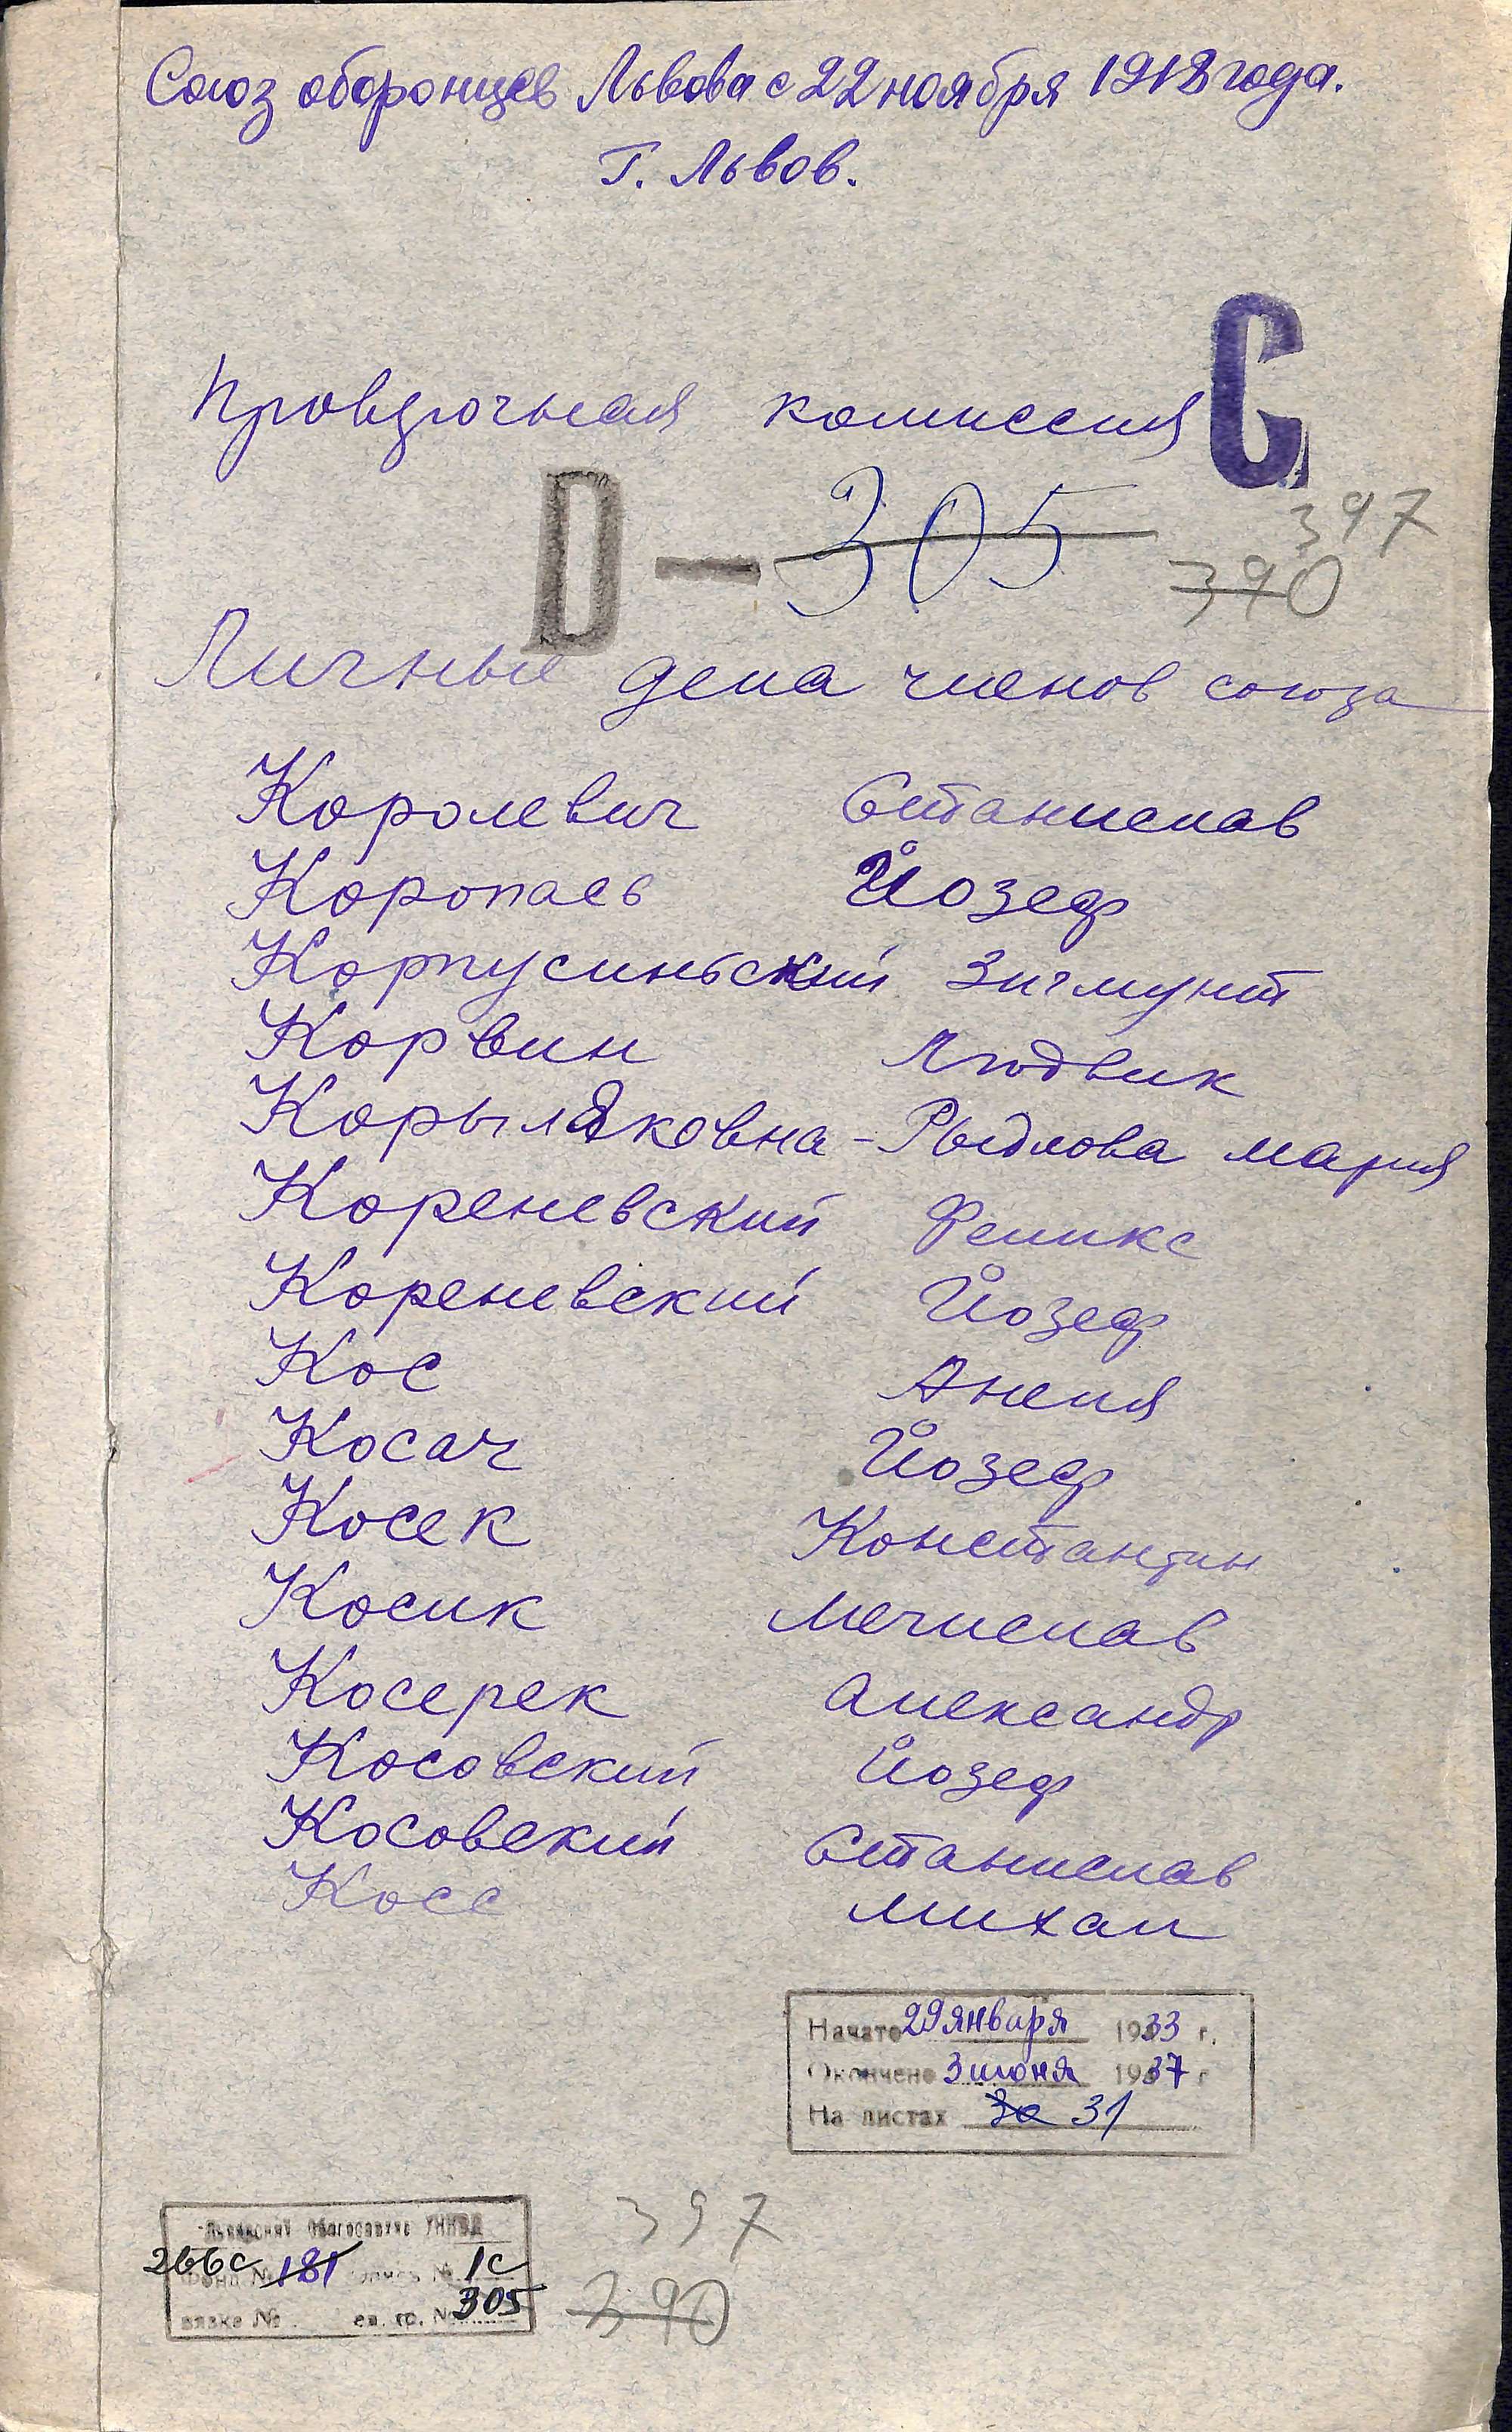 Союз оборонцев Львова с 22 ноября 1918 года.
Г. Львов.
С
комиссия
D — 305
397
390
Личные дела членов союза
Королевич Станислав
Коропась Йозеф
Корпусиньский Зигмунт
Корвин Людвик
Корылякoвна - Рыдлова мария
Кореневский Феликс
Кореневский Йозеф
Кос Анеля
Косач Йозеф
Косек Константин
Косик мечислав
Косерек александр
Косовский Йозеф
Косовский Станислав
Косс михал
Начато 29 января 1933 г.
Окончено 3 июня 1937 г
На листах 30 31
397
266с Фонд № 181 опись № 1с
связка № ед. хр. № 305
390